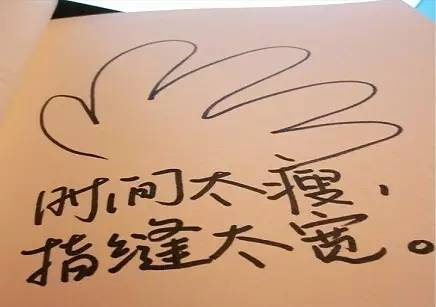 时间太瘦，
指缝太宽。